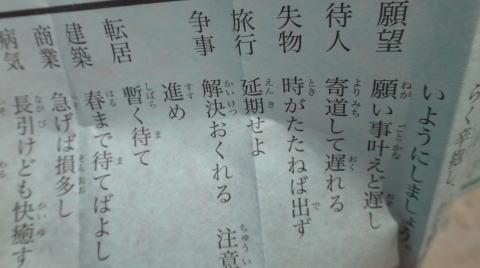 らく辛抱し
いようにしましょう。
願望 願い事叶えど遅し
待人 寄道して遅れる
失物 時がたたねば出ず
旅行 延期せよ
争事 解決おくれる 注意
進め
転居 暫く待て
建築 春まで待てばよし
商業 急げば損多し
病気 長引けども快癒す